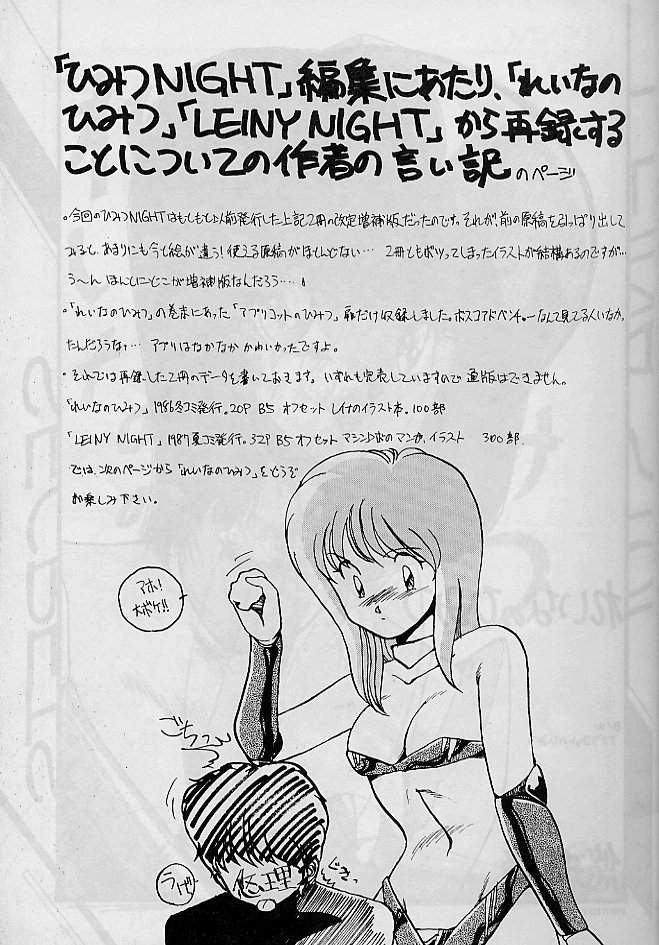 「ひみつNIGHT」編集にあたり、「れいなの
ひみつ」「LEINY NIGHT」から再録する
ことについての作者の言い訳のページ
・今回のひみつNIGHTはもともと以前発行した上記2冊の改定増補版だったのです。それが前の原稿を引っぱり出して
みると、あまりにも今と絵が違う!使える原稿がほとんどない… 2冊ともボツってしまったイラストが結構あるのですが…
う〜ん ほんとにどこが増補版なんだろう……!
・「れいなのひみつ」の巻末にあった「アプリコットのひみつ」扉だけ収録しました。ボスコアドベンチャーなんて見てる人いなか
たんだろうなァ… アプリはなかなかかわいかったですよ。
・それでは再録した2冊のデータを書いておきます。いずれも完売していますので通販はできません。
「れいなのひみつ」1986冬コミ発行。20P B5 オフセット レイナのイラスト本。100部
「LEINY NIGHT」1987夏コミ発行。32P B5 オフセット マシンロボのマンガ、イラスト 300部
では、次のページから「れいなのひみつ」をどうぞ
お楽しみ下さい。
アホ!
大ボケ!!
ごちっ
うげ
悠理
ぐさっ